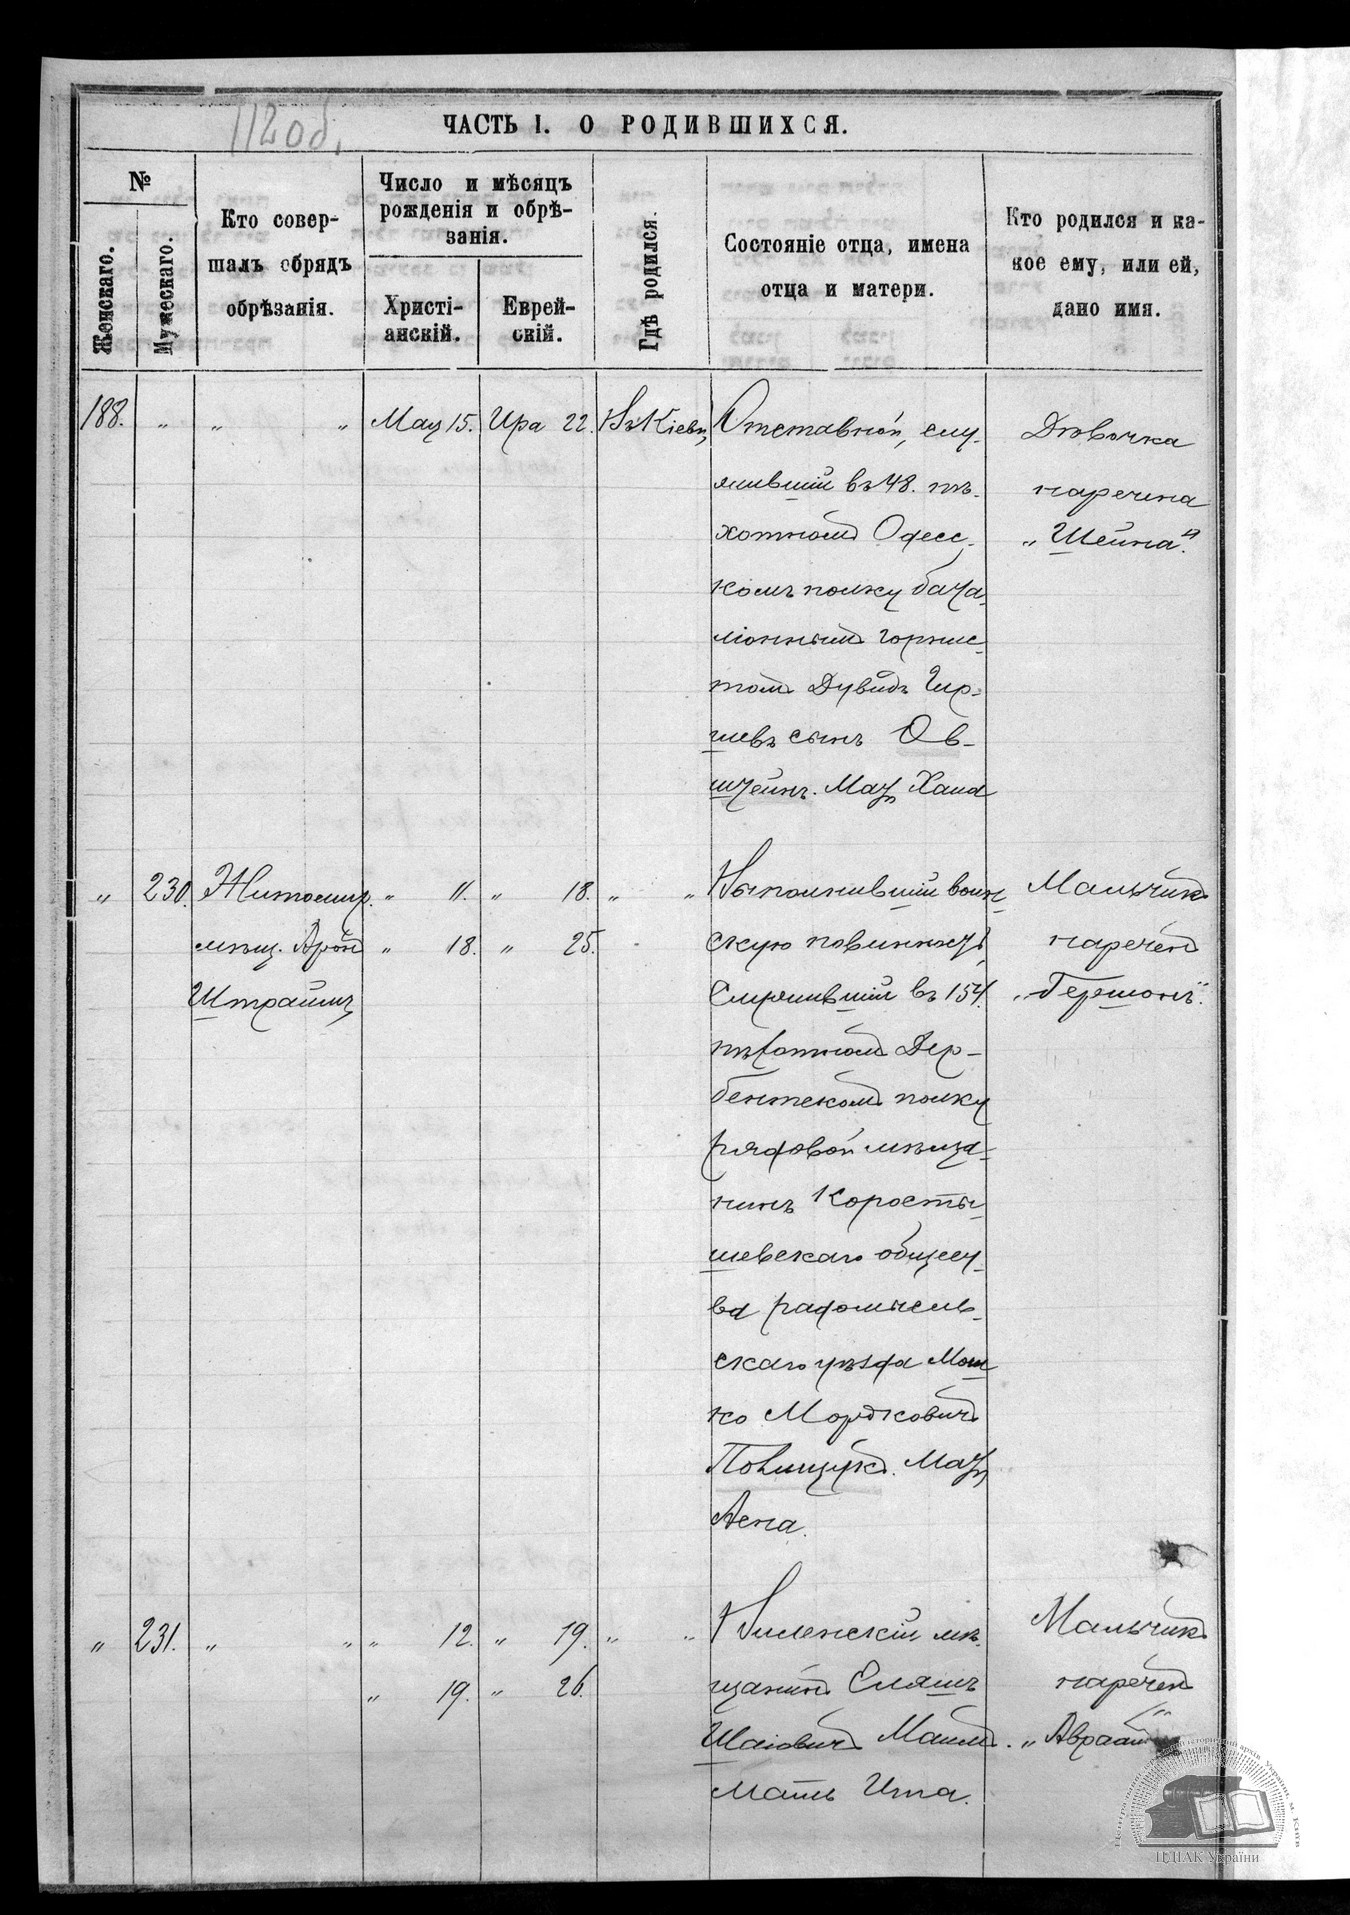 112 об.
ЧАСТЬ I. О РОДИВШИХСЯ.
№
Женскаго.
Мужескаго.
Кто совер-
шалъ обрядъ
обрѣзанія.
Число и мѣсяцъ
рожденія и обрѣ-
занія.
Христі-
анскій.
Еврей-
скій.
Гдѣ родился.
Состояніе отца, имена
отца и матери.
Кто родился и ка-
кое ему, или ей,
дано имя.
188. „ „ „ Мая 15. Ира 22. Въ Кіевѣ,
Отставной, слу-
жившій въ 48. пѣ-
хотномъ Одесс-
комъ полку бата-
ліоннымъ горнис-
томъ Дувидъ Гер-
шевъ сынъ Ов-
штейнъ. Мать Хана
Дѣвочка
наречена
„Шейна“.
„ 230. Житомир.
мѣщ. Аронъ
Штраймъ
„ 11. „ 18. „ „
„ 18. „ 25.
Выполнившій воин-
скую повинность,
Служившій въ 154.
пѣхотномъ Дер-
бентскомъ полку
рядовой мѣща-
нинъ Коросты-
шевскаго общест-
ва Радомысль-
скаго уѣзда Мош-
ко Мордковичъ
Полищукъ. Мать
Асна.
Мальчикъ
нареченъ
„Гершонъ“.
„ 231. „ „ „ 12. „ 19. „ „
„ 19. „ 26.
Виленскій мѣ-
щанинъ Еляшъ
Шаіовичъ Маимъ.
Мать Ита.
Мальчикъ
нареченъ
„Авраамъ“
ЦДІАК України